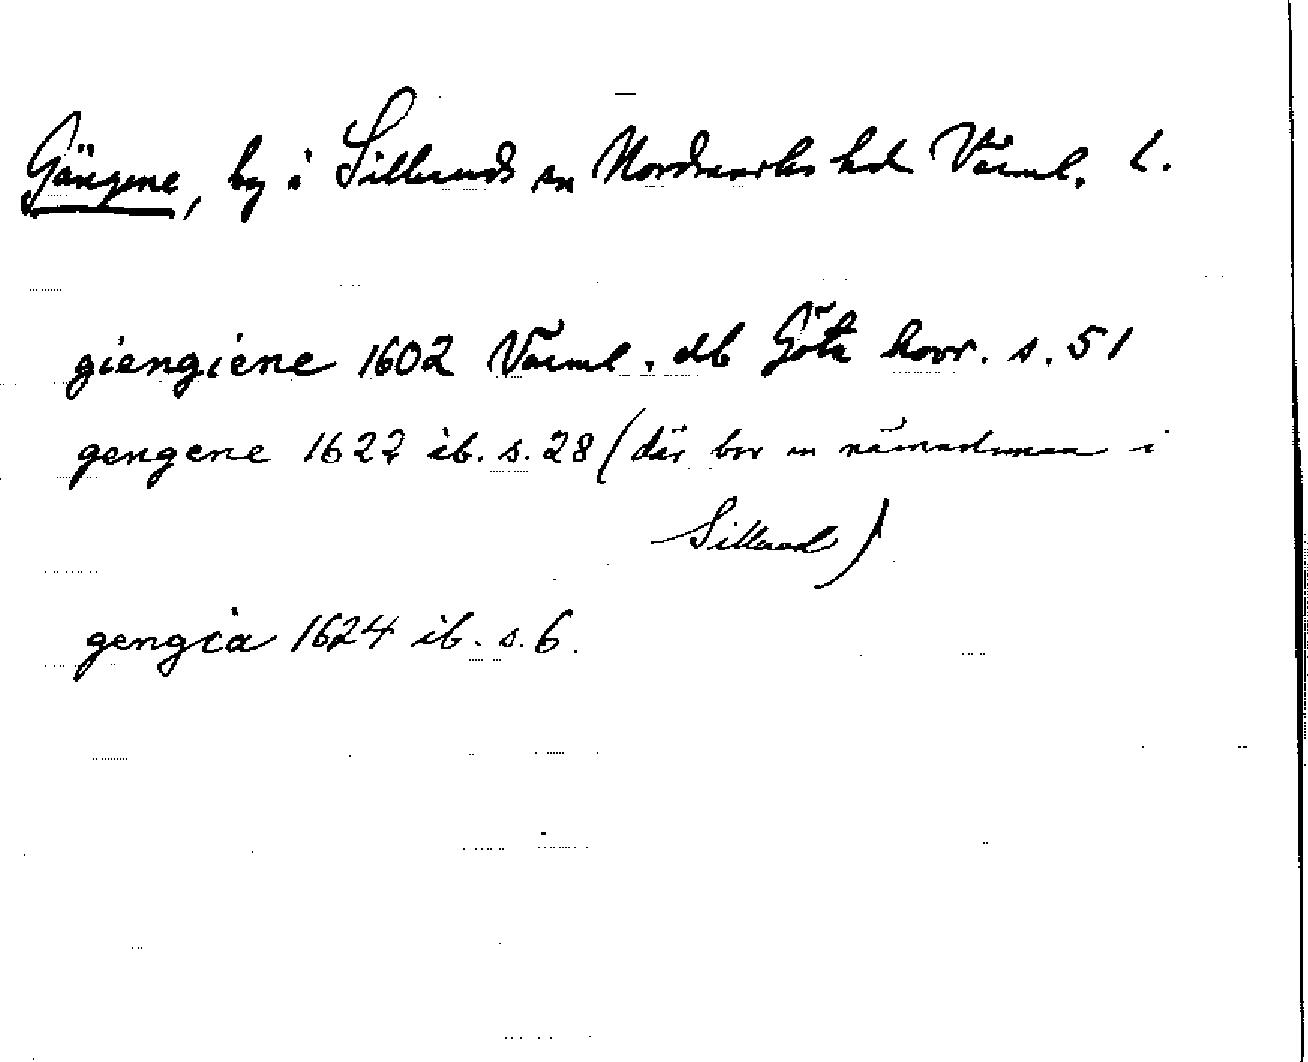 Gängene, by i Silleruds sn Nordmarks hd Värml. l.
giengiene 1602 Värml. db Göta hovr. s. 51
gengene 1622 ib. s. 28 (där bor en nämndeman i
Sillerud)
gengia 1624 ib. s. 6.